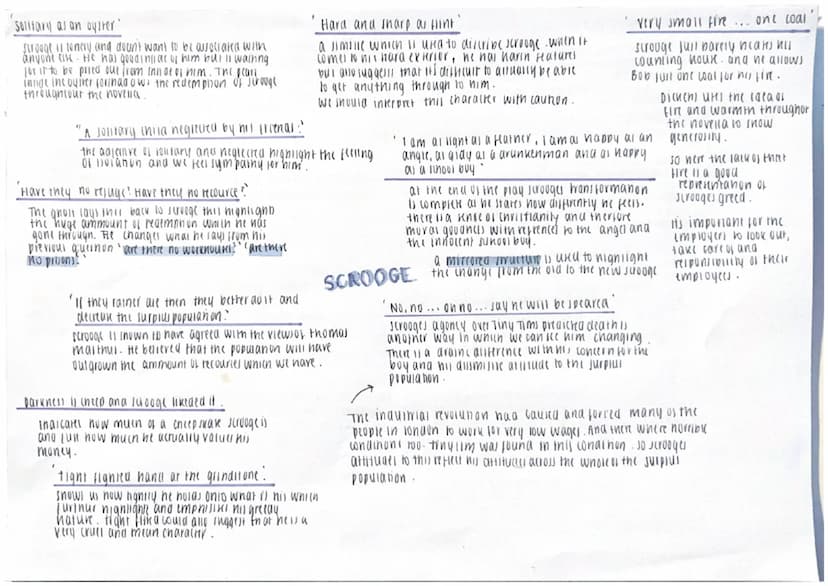 'Solitary as an oyster'
Scrooge is lonely and doesn't want to be associated with
anyone else. He has goodness inside of him but is waiting
for it to be pried out from inside of him. The pearl
inside the oyster foreshadows the redemption of scrooge
throughout the novella.
'A solitary child neglected by his friends.'
the adjective of solitary and neglected highlight the feeling
of isolation and we feel sympathy for him.
'Have they no refuge? Have they no resource?'
The ghost says this back to scrooge this highlights
the huge ammount of redemption which he has
gone through. He changes what he says from his
previous question 'are there no workhouses?' 'are there
no prisons?'
'If they rather die then they better do it and
decrease the surplus population.'
scrooge is shown to have agreed with the views of thomas
malthus. He believed that the population will have
outgrown the ammount of recources which we have.
Darkness is cheap and scrooge likeded it.
Indicates how much of a cheapskate scrooge is
and just how much he actually values his
money.
'tight fisted hand at the grindstone.'
shows us how tightly he holds onto what is his which
further highlights and emphasises his greedy
nature. tight fisted could also suggest that he is a
very cruel and mean character.
'Hard and sharp as flint'
a simile which is used to describe scrooge. when it
comes to his hard exterior, he has harsh features
but also suggests that its difficult to actually be able
to get anything through to him.
we should interpret this character with caution.
'I am as light as a feather, I am as happy as an
angle, as giddy as a drunken man and as happy
as a school boy'
at the end of the play scrooges transformation
is complete as he states how differently he feels.
there is a sense of christianity and therfore
moral goodness with refrences to the angel and
the innocent school boy.
a mirrored structure is used to highlight
the change from the old to the new scrooge
SCROOGE
'No, no ... oh no ... say he will be speared'
scrooges agency over Tiny Tims predicted death is
another way in which we can see him changing.
There is a drastic difference with his concern for the
boy and his dismissive attitude to the surplus
population.
The industrial revolution had caused and forced many of the
people in london to work for very low wages. And there where horrible
conditions too. tiny tim was found in this condition. so scrooges
attitudes to this reflect his attitudes across the whole of the surplus
population.
'very small fire ... one coal'
scrooge just barely heats his
counting house. and he allows
Bob just one coal for his fire.
Dickens uses the idea of
fire and warmth throughout
the novella to show
generosity.
so here the lack of that
fire is a good
representation of
scrooges greed.
its important for the
employers to look out,
take care of and
responsibility of their
employees.